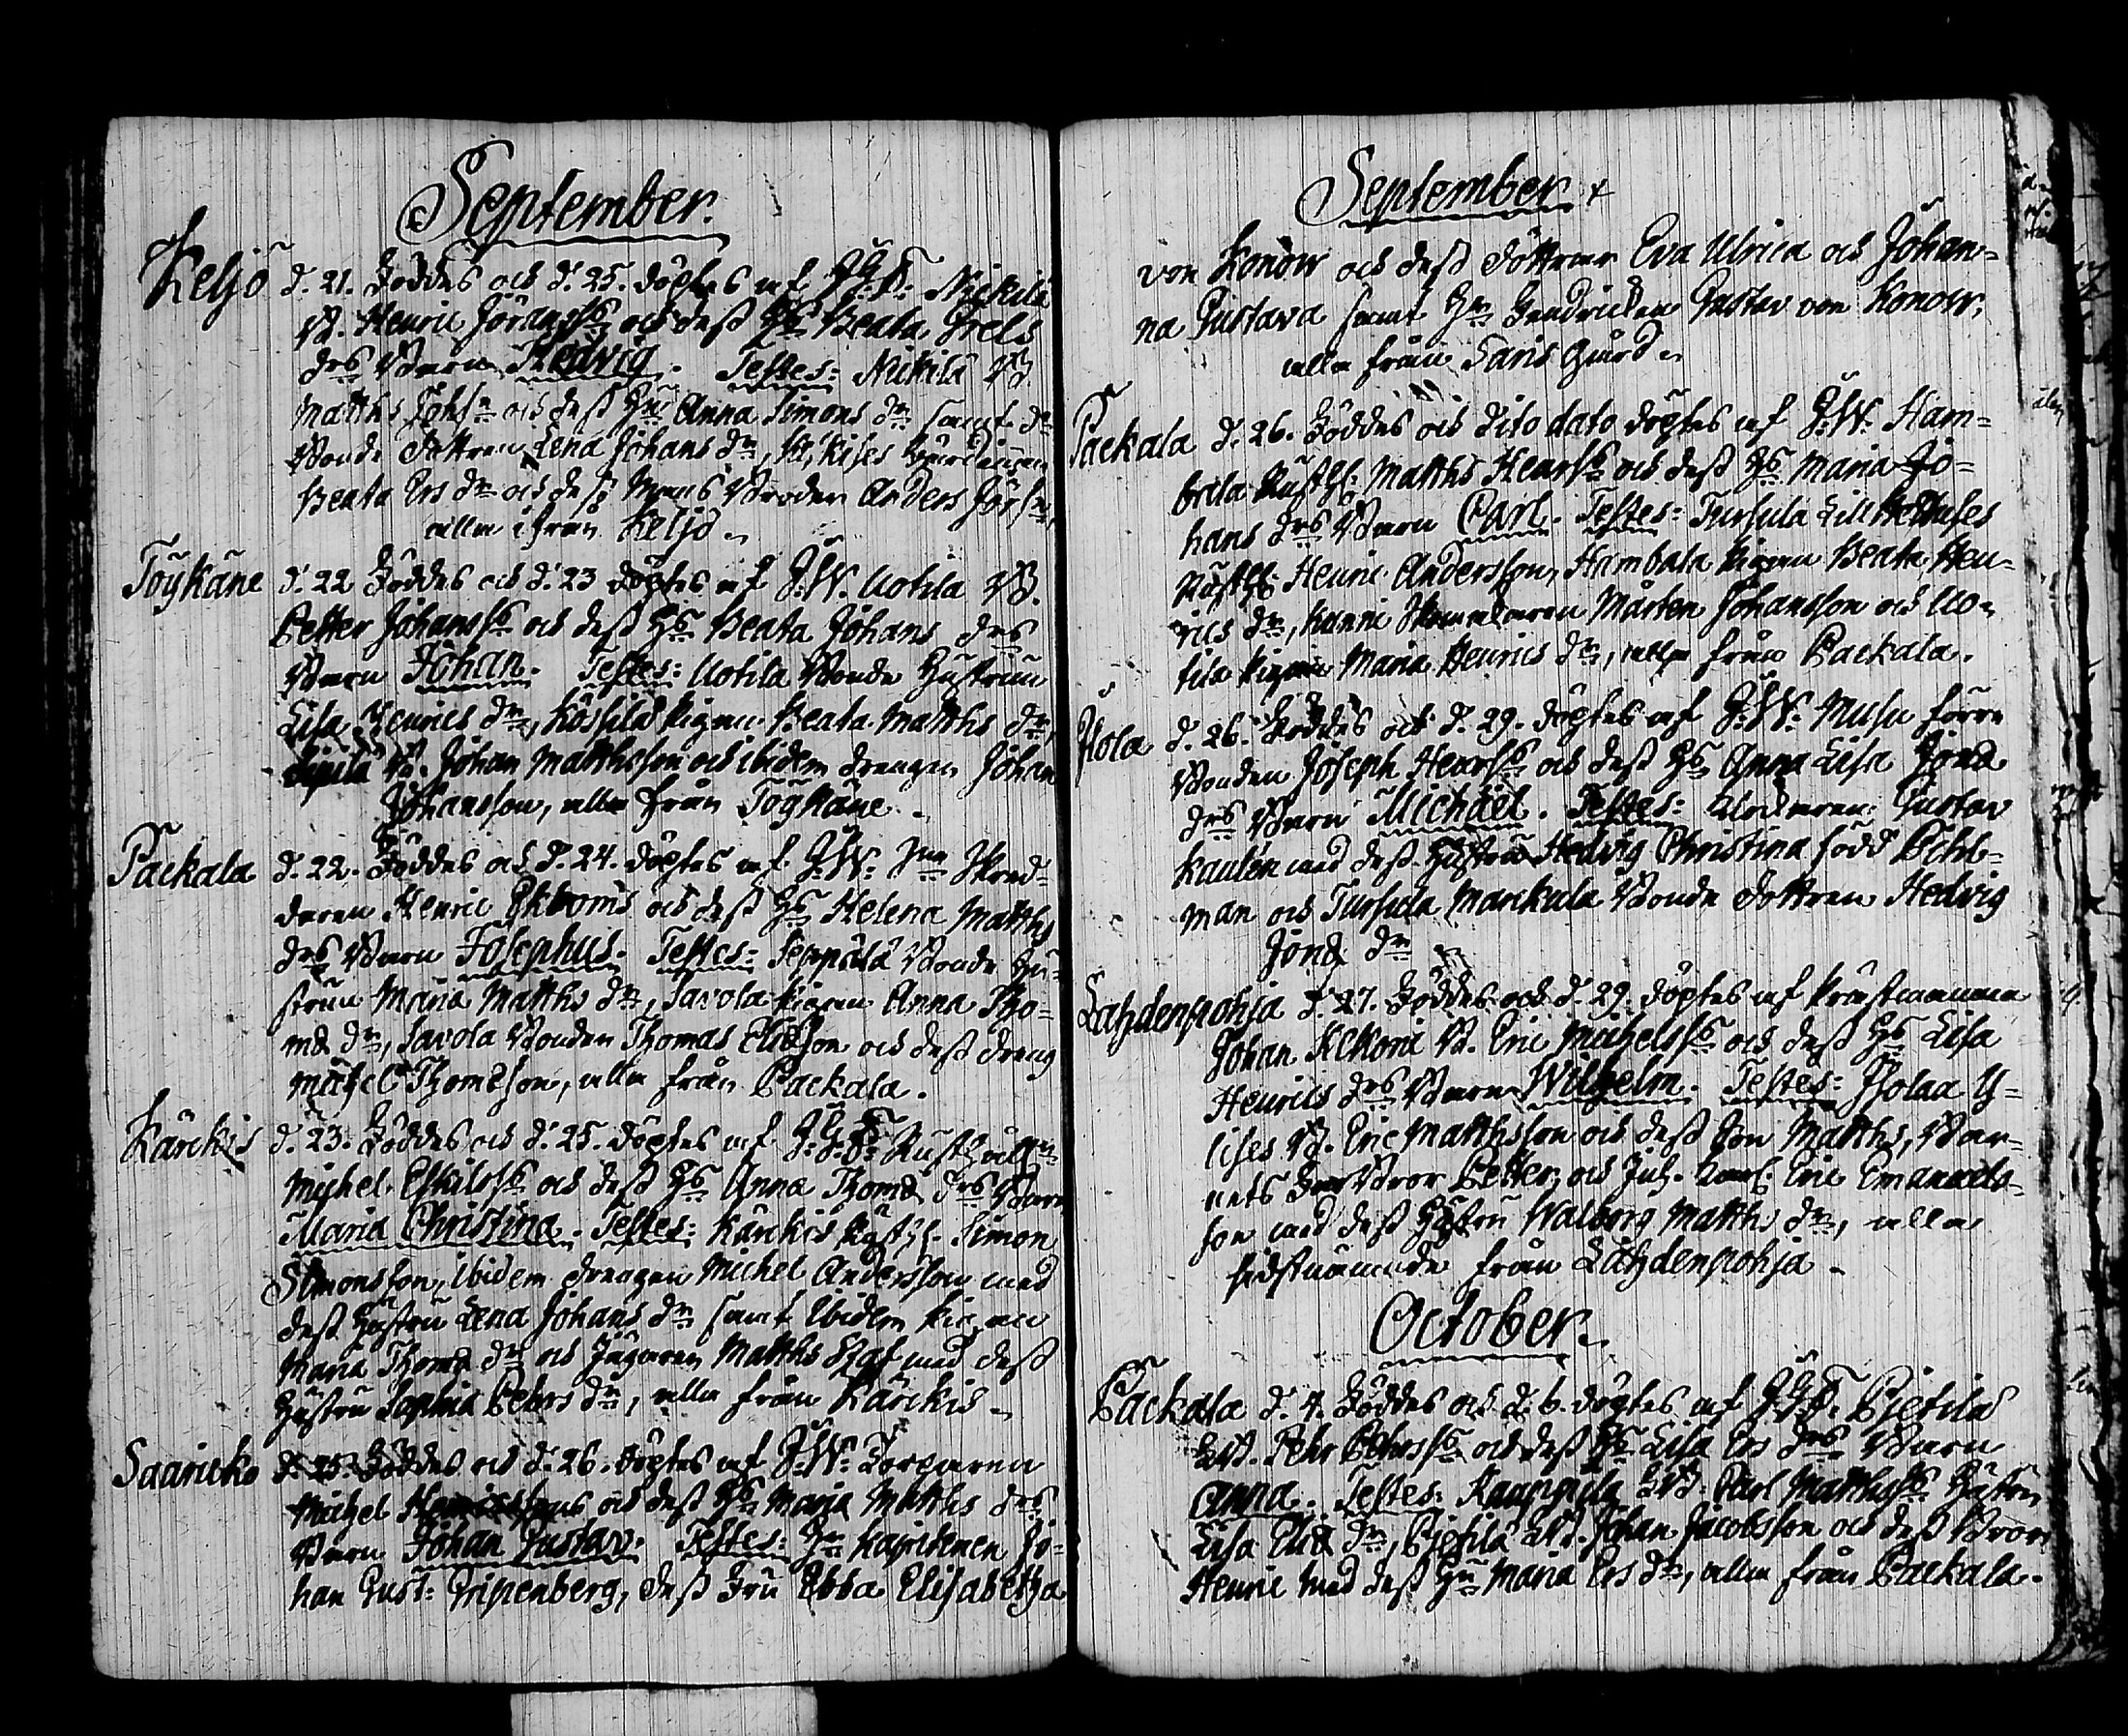 September.
Keljo d. 21. Föddes och d. 25. döptes af J.G.P. Nickilä
B. Henric Jöranss och dess Hs Beata Grels
drs Barn Hedvig. Testes: Nickilä B.
Matths Johsn och dess Hu Anna Simons dr samt dn
Bonde Dottren Lena Johans dr,
Beata Ers dr och dess Mans Broder Anders Jörsn,
alla ifrån Keljo.
Töykäne d. 22 Föddes och d. 23 döptes af J.W. Uotila B.
Petter Johanss och dess Hs Beata Johans drs
Barn Johan. Testes: Uotila Bonde Hustrun
Lisa Henrics dr, Kössilä Pigan Beata Matths dr,
Sipilä B. Johan Matthsson och ibidem drengen Johan
Johansson, alla från Töykäne.
Packala d. 22. Föddes och d. 24. döptes af J.W. Skred-
daren Henric Ekroms och dess Hs Helena Matths
drs Barn Josephus. Testes: Seppälä Bonde Hu-
strun Maria Matths dr, Savola Pigan Anna Tho-
mæ dr, Savola Bonden Thomas Eliæson och dess dreng
Michel Thomæson, alla från Packala.
Kärckis d. 23. Föddes och d. 25. döptes af J.G.P. Rusthåll
Michel Eskilss och dess Hs Anna Thomæ drs Barn
Maria Christina. Testes: Kärckis Rusth. Simon
Simonsson, Ibidem drengen Michel Andersson med
dess Hustru Lena Johans dr samt Ibidem Pigan
Maria Thomæ dr och Jägaren Matths Elg med dess
Hustru Sophia Pehrs dr, alla från Kärckis.
Saaricko d. 25. Föddes och d. 26. döptes af J.W. Torparen
Michel Henrissons och dess Hs Maria Matths drs
Barn Johan Gustav. Testes: Hr Kapitenen Jo-
han Gust: Gripenberg, dess Fru Ebba Elisabetha
September
von Konow och dess döttrar Eva Ulrica och Johan-
na Gustava samt Hr Fendricken Gustav von Konow,
alla från Saris gård.
Packala d. 26. Föddes och dito dato döptes af J.W. Ham-
brila Rusth. Matths Henrss och dess Hs Maria Jo-
hans drs Barn Carl. Testes: Tursula Lill Heickuses
Rusth. Henric Andersson, Hambala Pigan Beata Hen-
rics dr, Hanni Skomakaren Mårten Johansson och Uo-
tila Pigan Maria Henrics dr, alla från Packala.
Hola d. 26. Föddes och d. 29. döptes af J.W. Musu förra
Bonden Joseph Henrss och dess Hs Anna Lisa Jonæ
drs Barn Michaël. Testes: Klockaren Gustav
Kaulén med dess Hustru Hedvig Christina född Ech-
man och Tursula Marikula Bonde Dottren Hedvig
Jonæ dr
Lahdenpohja d. 27. Föddes och d. 29. döptes af Prostmannen
Johan Kekoni B. Eric Michelss och dess Hs Lisa
Henrics drs Barn Wilhelm. Testes: Holaa Y-
lises B. Eric Matthsson och dess Son Matths, Bar-
nets Farbror Petter, och Inh. Karl Eric Emanuels-
son med dess Hustru Walborg Matths dr, alla
sidstnämnde från Lahdenpohja.
October.
Packala d. 4. Föddes och d. 6. döptes af J.G.P. Pietilä
LB. Pehr Pehrss och dess Hs Lisa Ers drs Barn
Anna. Testes: Kauppila LB. Carl Matthss Hustru
Lisa Eliæ dr, Pietilä LB. Johan Jacobsson och dess Bror
Henric med dess Hu Maria Ers dr, alla från Packala.